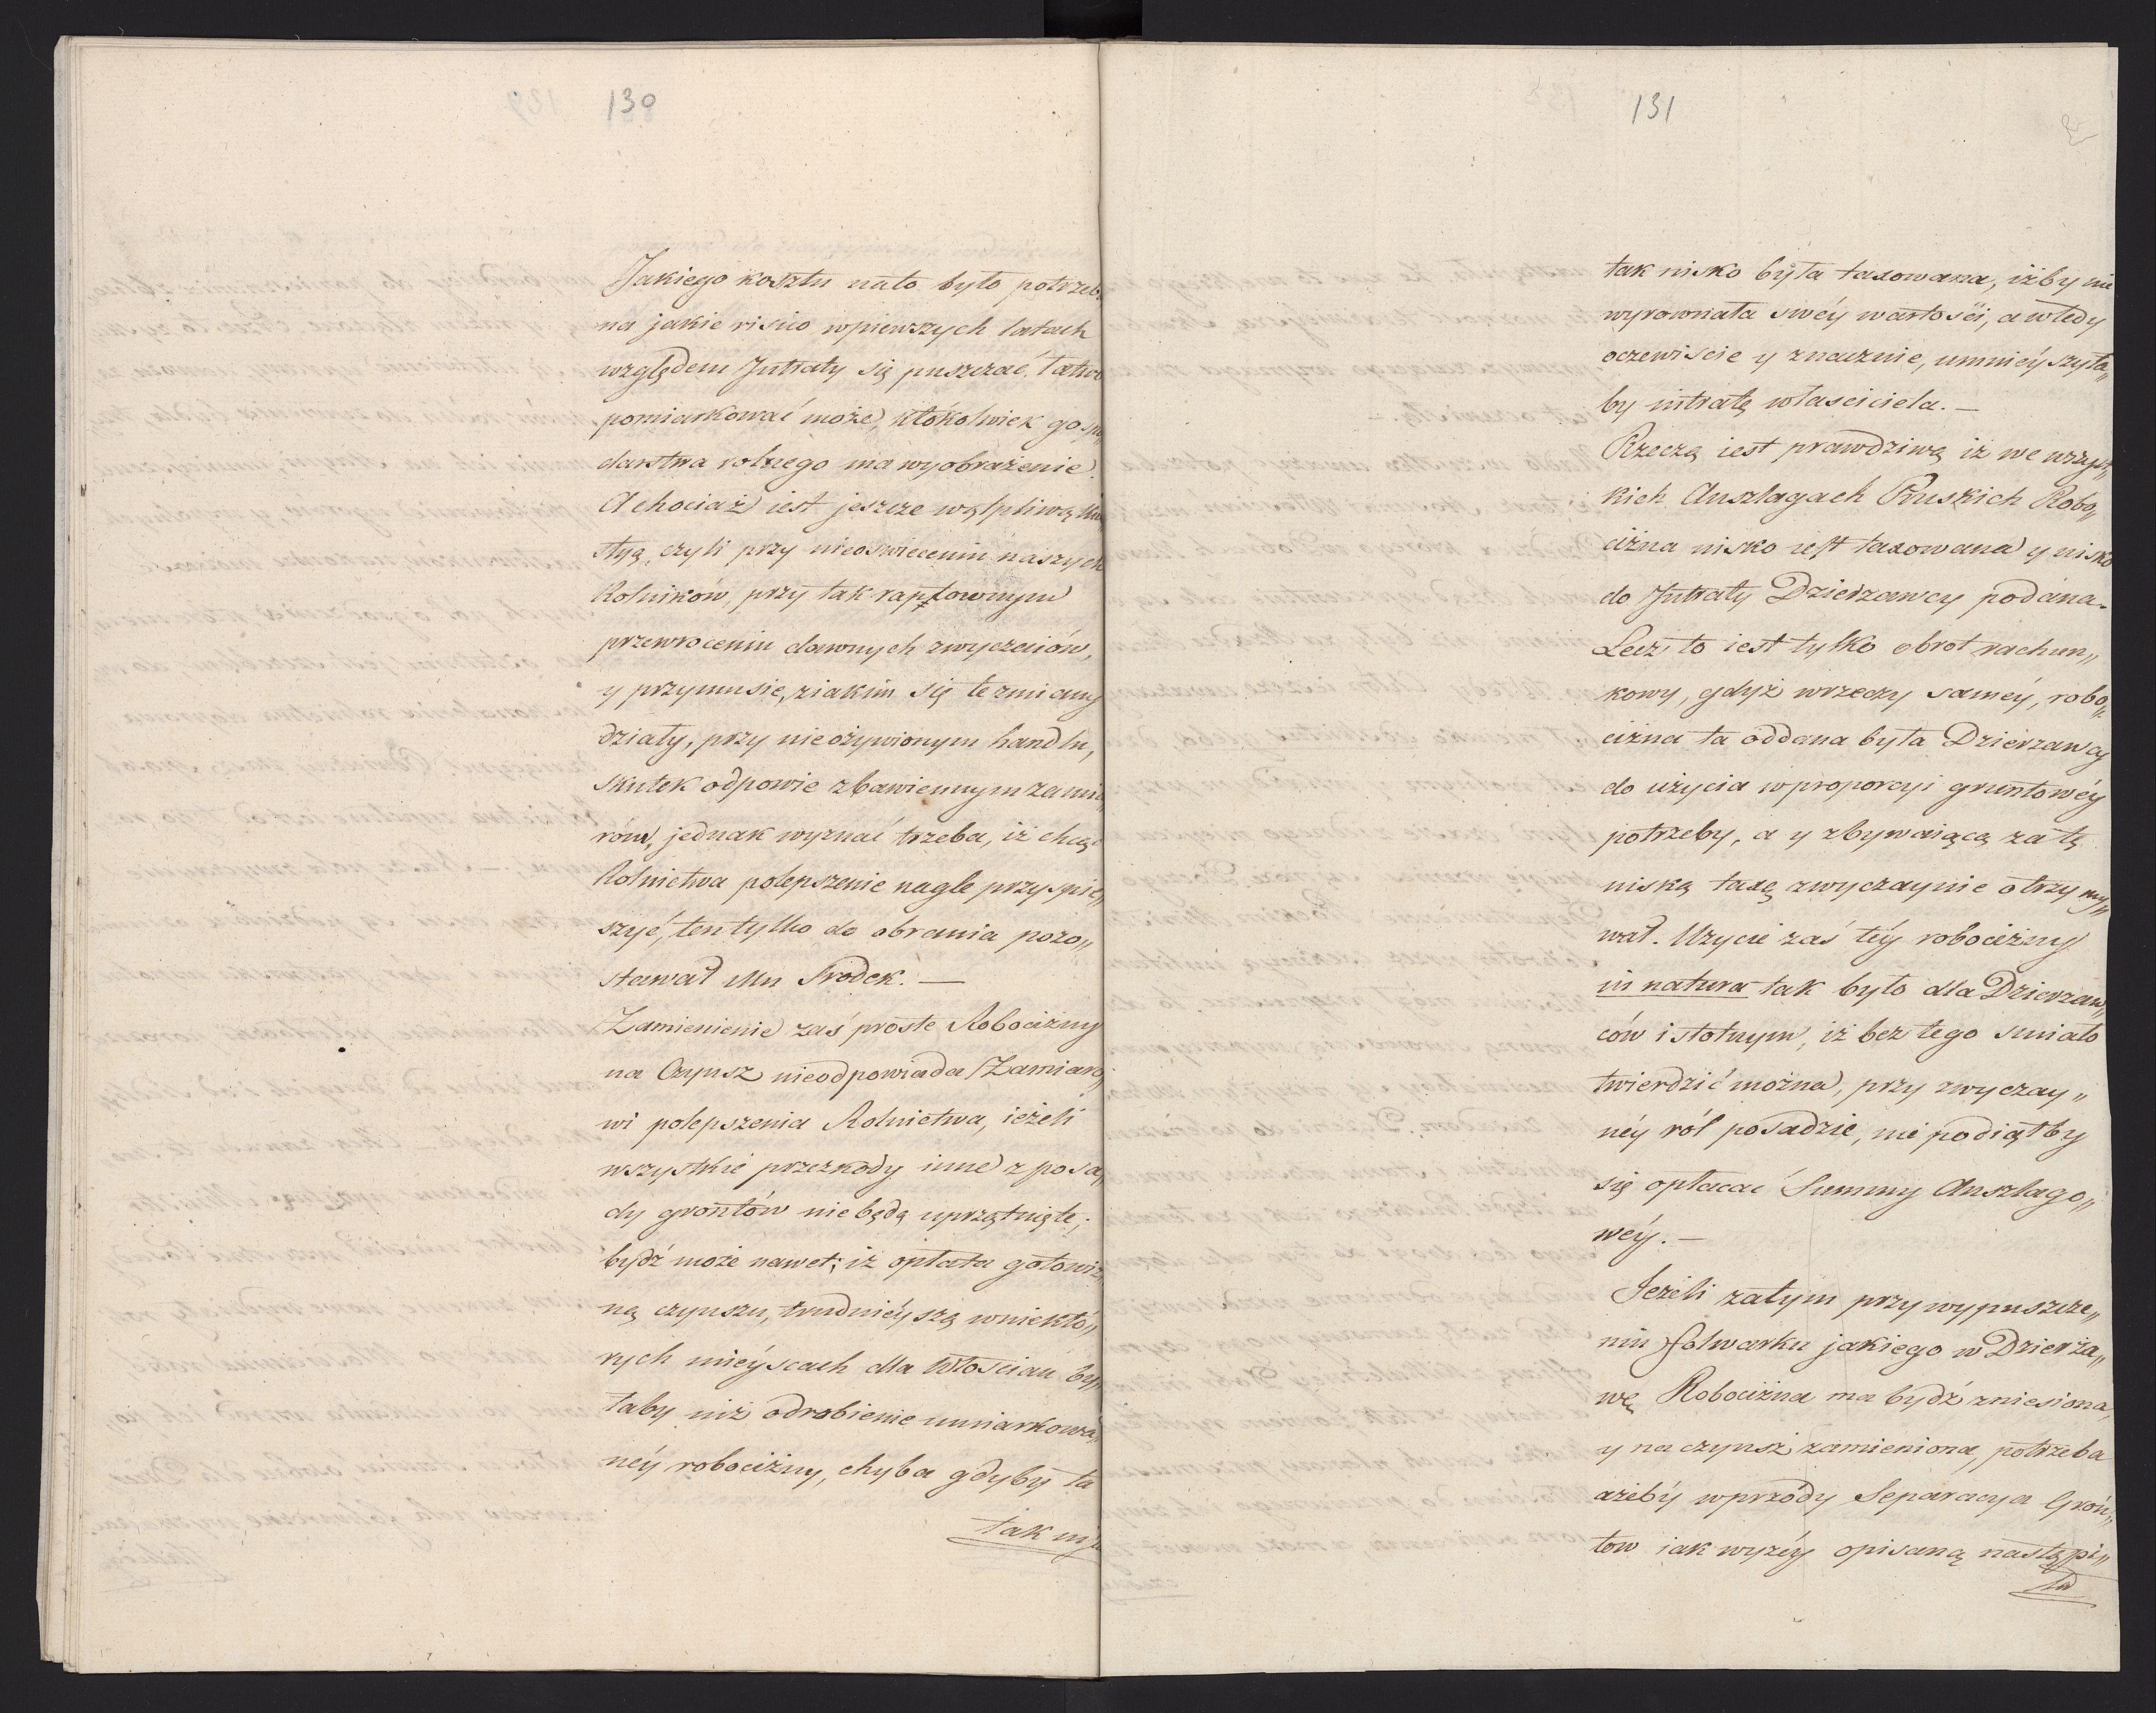 130
Jakiego kosztu nato było potrzeb
na jakie risico wpierwszych latach
względem Jntraty się puszczać, łatwo
pomiarkować może, ktokolwiek gospo„
darstwa rolnego ma wyobrażenie.
A chociaż iest jeszcze wątpliwą kwe
styą, czyli przy nieoswieceniu naszych
Rolników, przy tak raptownym
przewroceniu dawnych zwyczaiów,
y przymusie, ziakim się te zmiany
działy, przy nieożywionym handlu,
skutek odpowie zbawiennym zamia
rów, jednak wyznać trzeba, iż chcąc
Rolnictwa polepszenie nagle przyspie„
szyć, ten tylko do obrania pozo„
stawał Mu Srodek. —
Zamienienie zaś proste Robocizny
na Czynsz nieodpowiada Zamiaro„
wi polepszenia Rolnictwa, ieżeli
wszystkie przeszkody inne z posa„
dy grontów niebędą uprzątnięte;
bydź może nawet; iż opłata gotowiz
ną czynszu, trudnieyszą wniektó„
rych mieyscach dla Włoscian by„
łaby niż odrobienie umiarkowa„
néy robocizny, chyba gdyby ta
tak nis
131
tak nisko była taxowana, iżby nie
wyrownała swéy wartości, a wtedy
oczewiscie y znacznie, umnieyszyła„
by intratę własciciela. —
Rzeczą iest prawdziwą iż we wszyst„
kich Anszlagach Pruskich Robo„
cizna nisko iest taxowana y nisko
do Jntraty Dzierzawcy podana.
Lecz to iest tylko obrot rachun„
kowy, gdyż wrzeczy saméy, robo„
cizna ta oddana była Dzierzawcy
do użycia wproporcyi gruntowéy
potrzeby, a y zbywaiącą za tę
niską taxę zwyczaynie otrzymy„
wał. Użycie zaś téy robocizny
in natura tak było dla Dzierzaw„
ców istotnym, iż bez tego smiało
twierdzić można, przy zwyczay„
néy ról posadzie, nie podiąłby
się opłacać Summy Anszlago„
wéy. —
Jeżeli zatym przy wypuszcze„
niu folwarku jakiego w Dzierża„
wę Robocizna ma bydź zniesiona,
y na czynsz zamieniona, potrzeba
ażeby wprzódy Separacya Gron„
tow iak wyżéy opisaną nastąpi„
ła